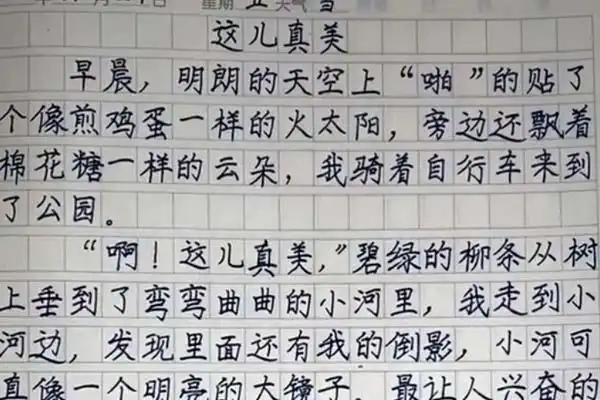 星期 五 天气
这儿真美
早晨，明朗的天空上“啪”的贴了
个像煎鸡蛋一样的火太阳，旁边还飘着
棉花糖一样的云朵，我骑着自行车来到
了公园。
“啊！这儿真美，”碧绿的柳条从树
上垂到了弯弯曲曲的小河里，我走到小
河边，发现里面还有我的倒影，小河可
真像一个明亮的大镜子，最让人兴奋的